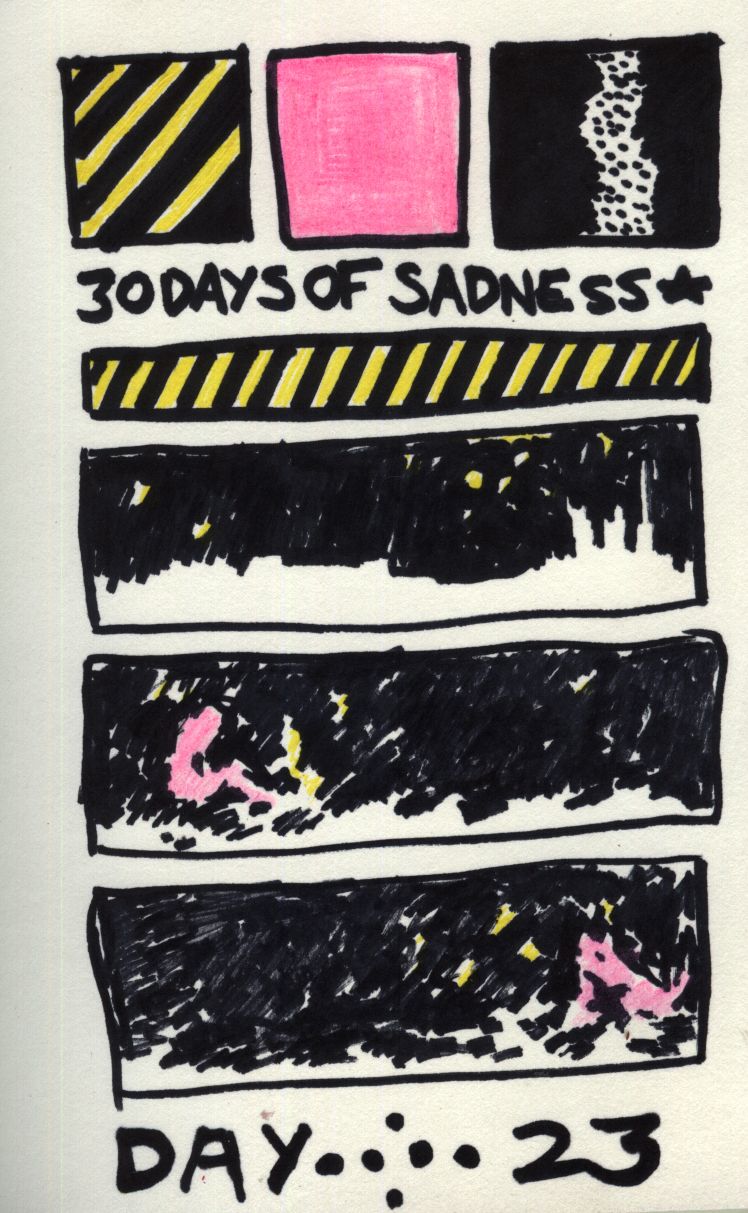 30 DAYS OF SADNESS★
DAY 23